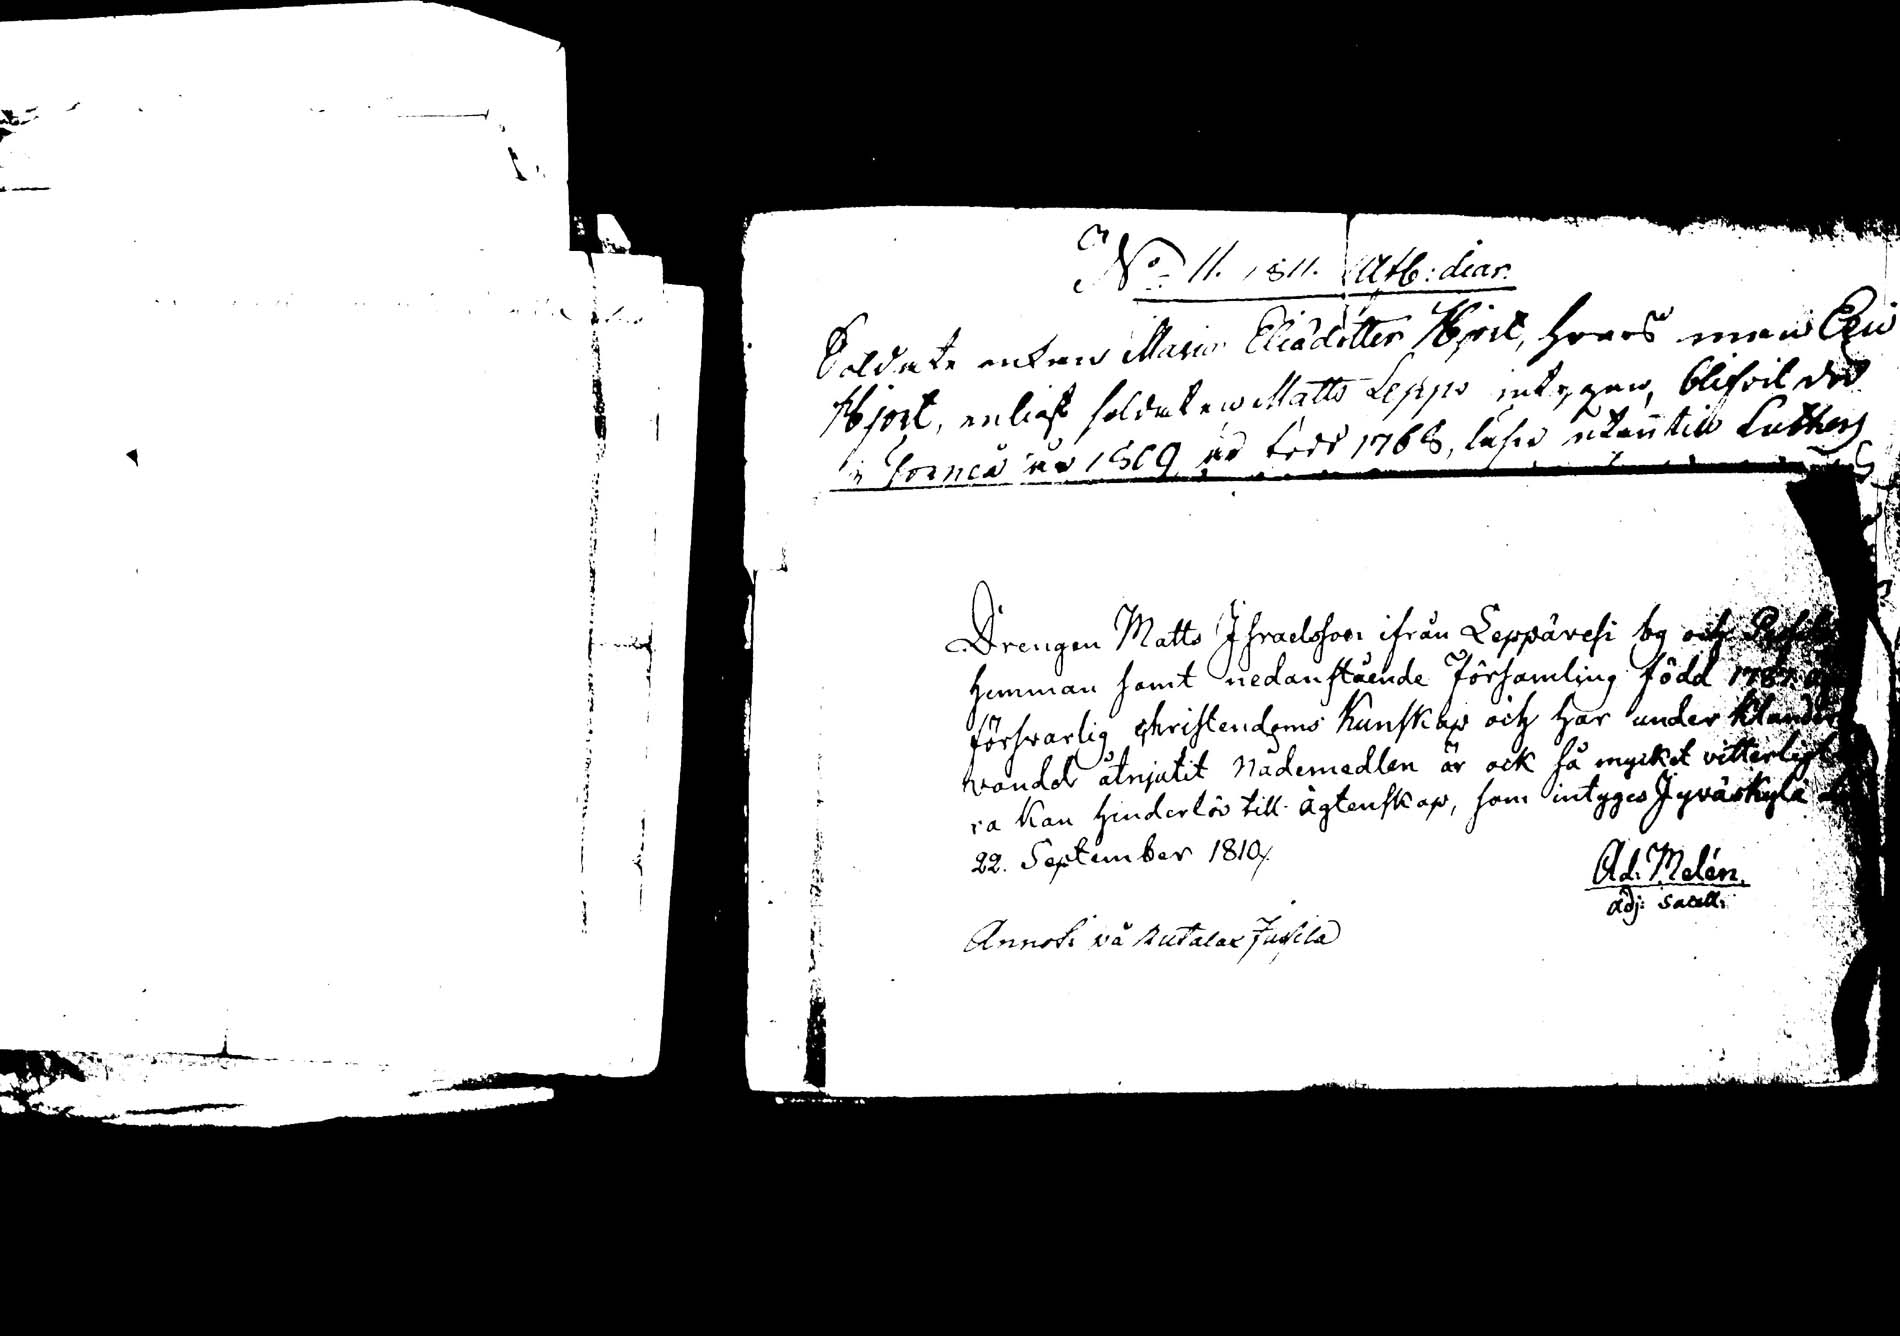 No 11. 1811. Att: diar.
Soldate enkan Maria Eliædotter Hjort, hvars man Eric
Hjort, enligt soldaten Matts Leppos intygan, blifvit död
i Torneå år 1809 är född 1768, läser utantill Luthers
Drengen Matts Jsraelsson ifrån Leppävesi by och
hemman samt nedanstående Församling född 1787. äger
försvarlig christendoms Kunskap och har under klander
vandel åtnjutit Nådemedlen är ock så mycket vitterligt
ra kan hinderlös till ägtenskap, som intyges Jyväskylä
22. September 1810.
Ad: Melén.
adj: Sacell:
Annoti på Rutalax Jussila